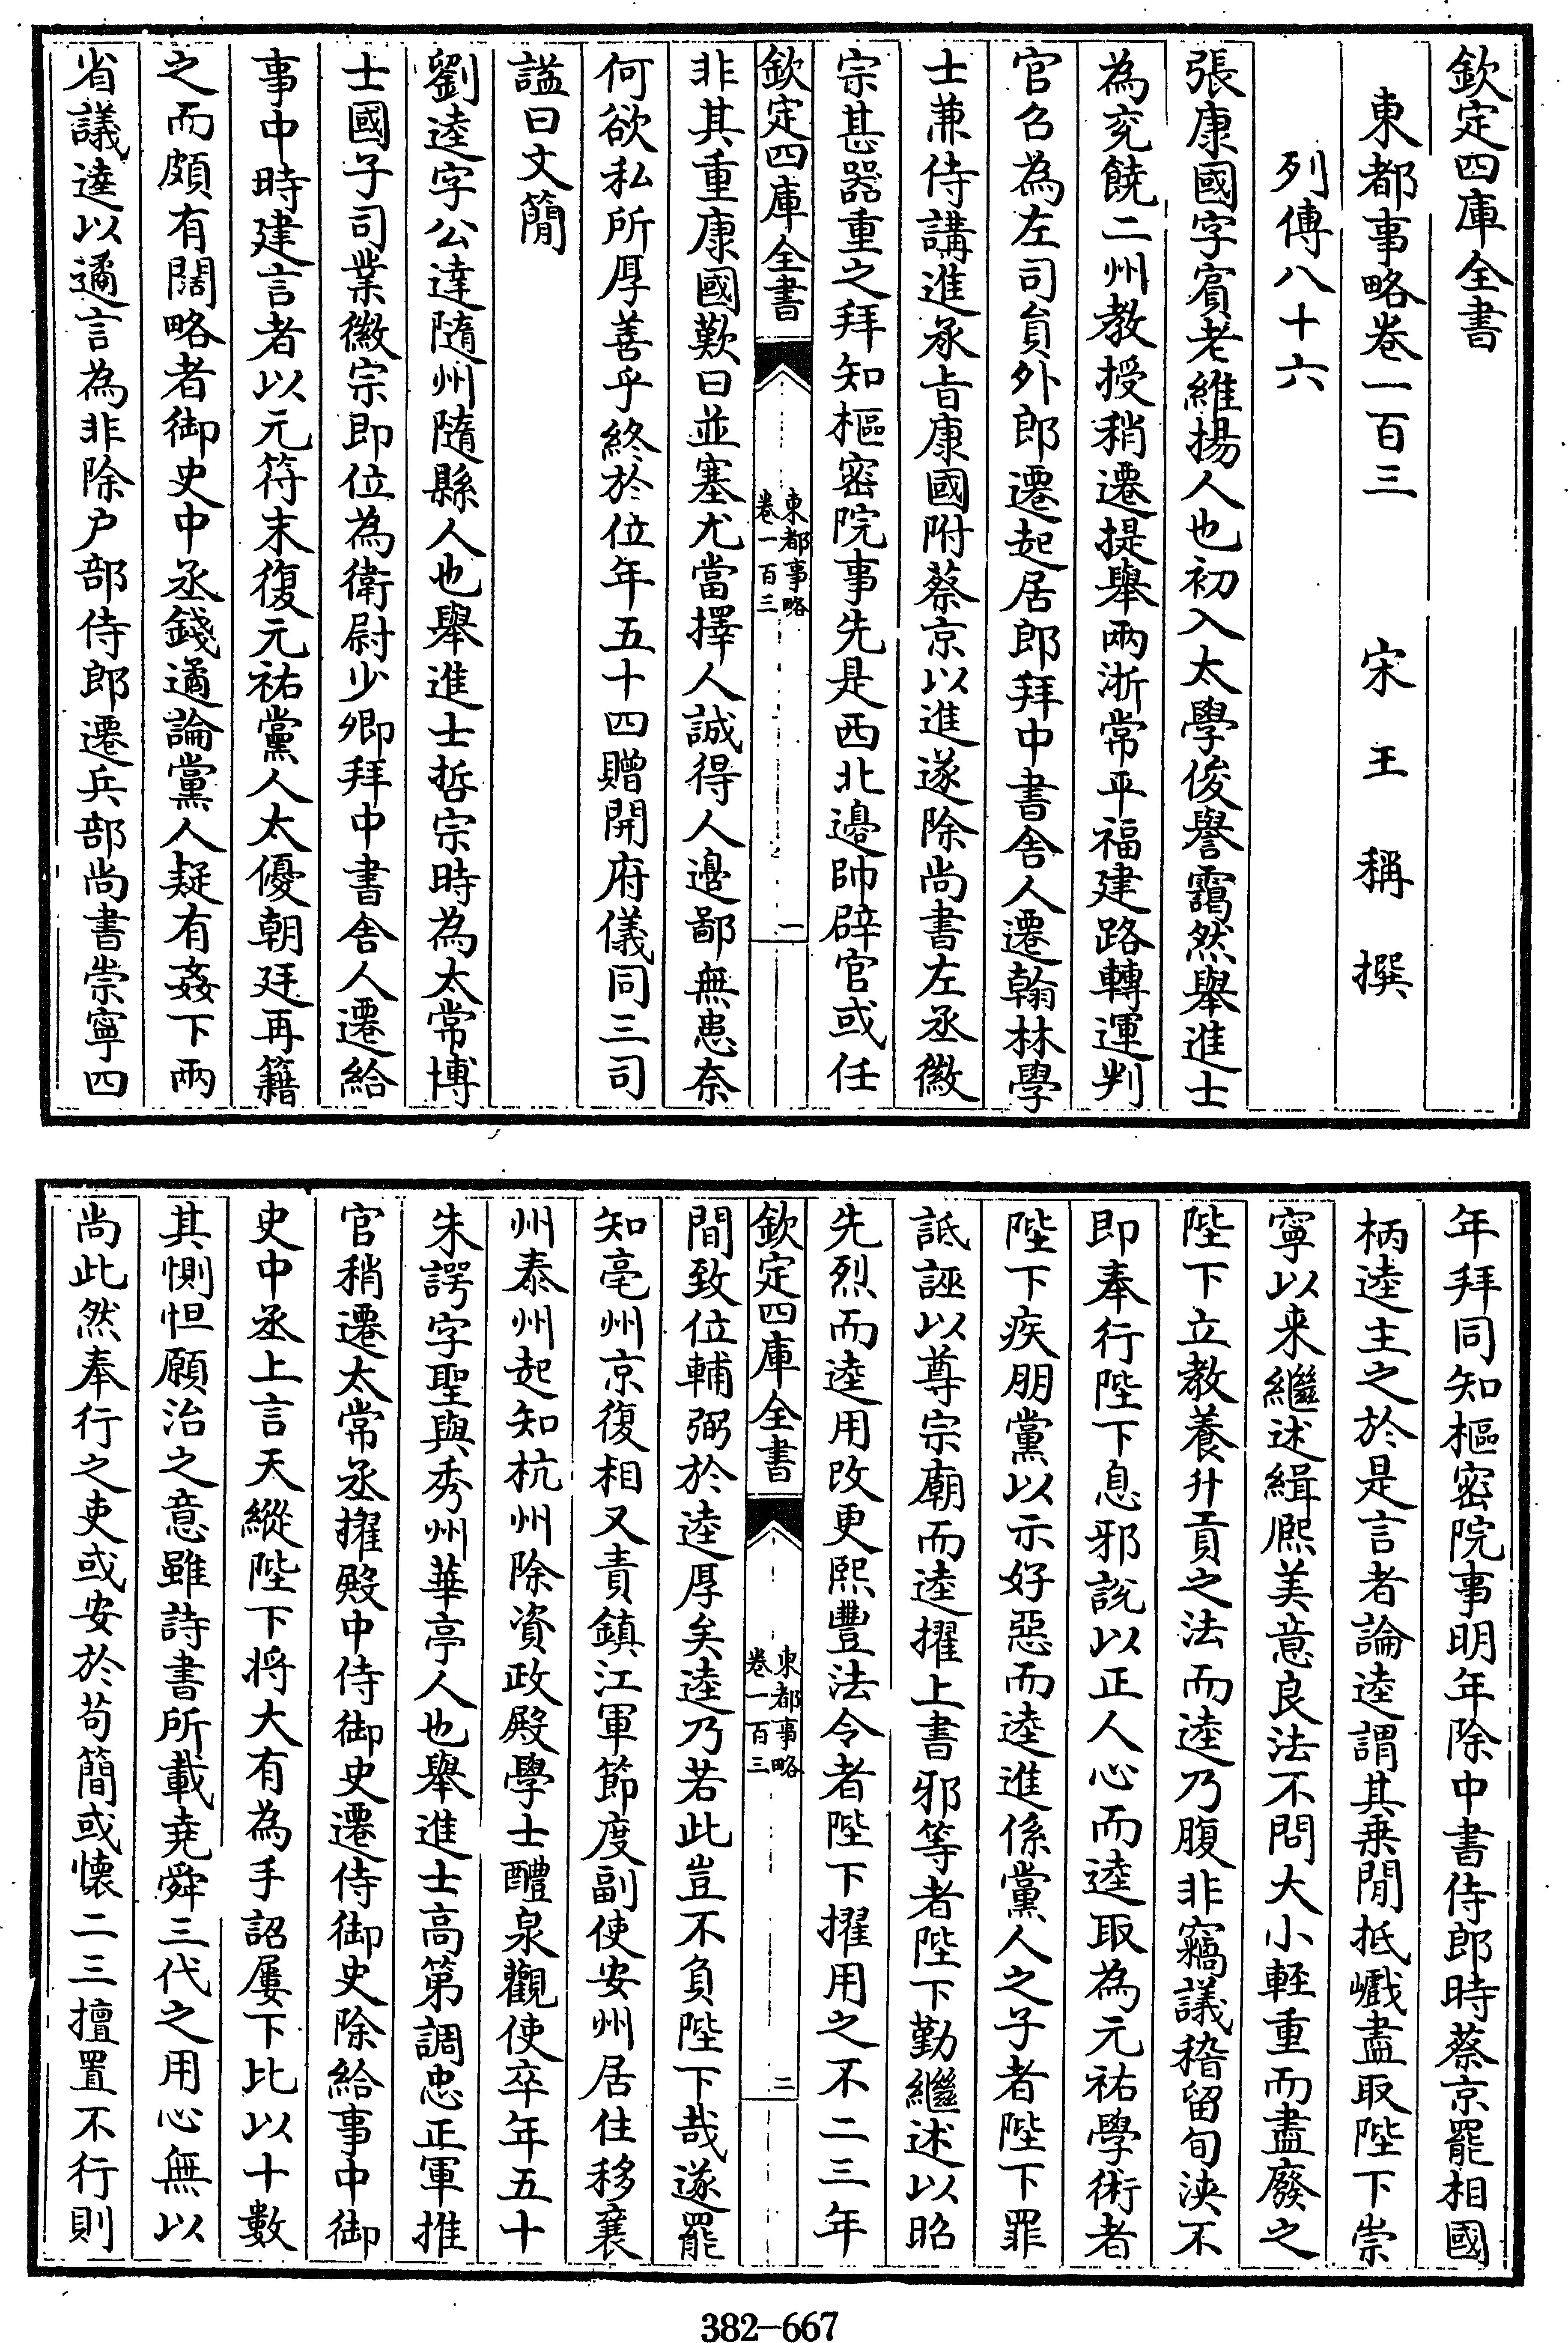 欽定四庫全書
東都事略卷一百三　宋　王　稱　撰
列傳八十六
張康國字賓老維揚人也初入太學俊譽靄然舉進士
為兖饒二州教授稍遷提舉兩浙常平福建路轉運判
官召為左司員外郎遷起居郎拜中書舍人遷翰林學
士兼侍講進承旨康國附蔡京以進遂除尚書左丞徽
宗甚器重之拜知樞密院事先是西北邊帥辟官或任
欽定四庫全書
東都事略
卷一百三
一
非其重康國歎曰並塞尤當擇人誠得人邊鄙無患奈
何欲私所厚善乎終於位年五十四贈開府儀同三司
諡曰文簡
劉逵字公達隨州隨縣人也舉進士哲宗時為太常博
士國子司業徽宗即位為衛尉少卿拜中書舍人遷給
事中時建言者以元符末復元祐黨人太優朝廷再籍
之而頗有闊略者御史中丞錢遹論黨人疑有姦下兩
省議逵以遹言為非除户部侍郎遷兵部尚書崇寧四
年拜同知樞密院事明年除中書侍郎時蔡京罷相國
柄逵主之於是言者論逵謂其乗閒抵巇盡取陛下崇
寧以来繼述緝熈美意良法不問大小輕重而盡廢之
陛下立教養升貢之法而逵乃腹非竊議稽留旬浹不
即奉行陛下息邪說以正人心而逵取為元祐學術者
陛下疾朋黨以示好惡而逵進係黨人之子者陛下罪
詆誣以尊宗廟而逵擢上書邪等者陛下勤繼述以昭
先烈而逵用改更熙豐法令者陛下擢用之不二三年
欽定四庫全書
東都事略
卷一百三
二
間致位輔弼於逵厚矣逵乃若此豈不負陛下哉遂罷
知亳州京復相又責鎮江軍節度副使安州居住移襄
州泰州起知杭州除資政殿學士醴泉觀使卒年五十
朱諤字聖與秀州華亭人也舉進士高第調忠正軍推
官稍遷太常丞擢殿中侍御史遷侍御史除給事中御
史中丞上言天縱陛下将大有為手詔屢下比以十數
其惻怛願治之意雖詩書所載堯舜三代之用心無以
尚此然奉行之吏或安於苟簡或懐二三擅置不行則
382—667